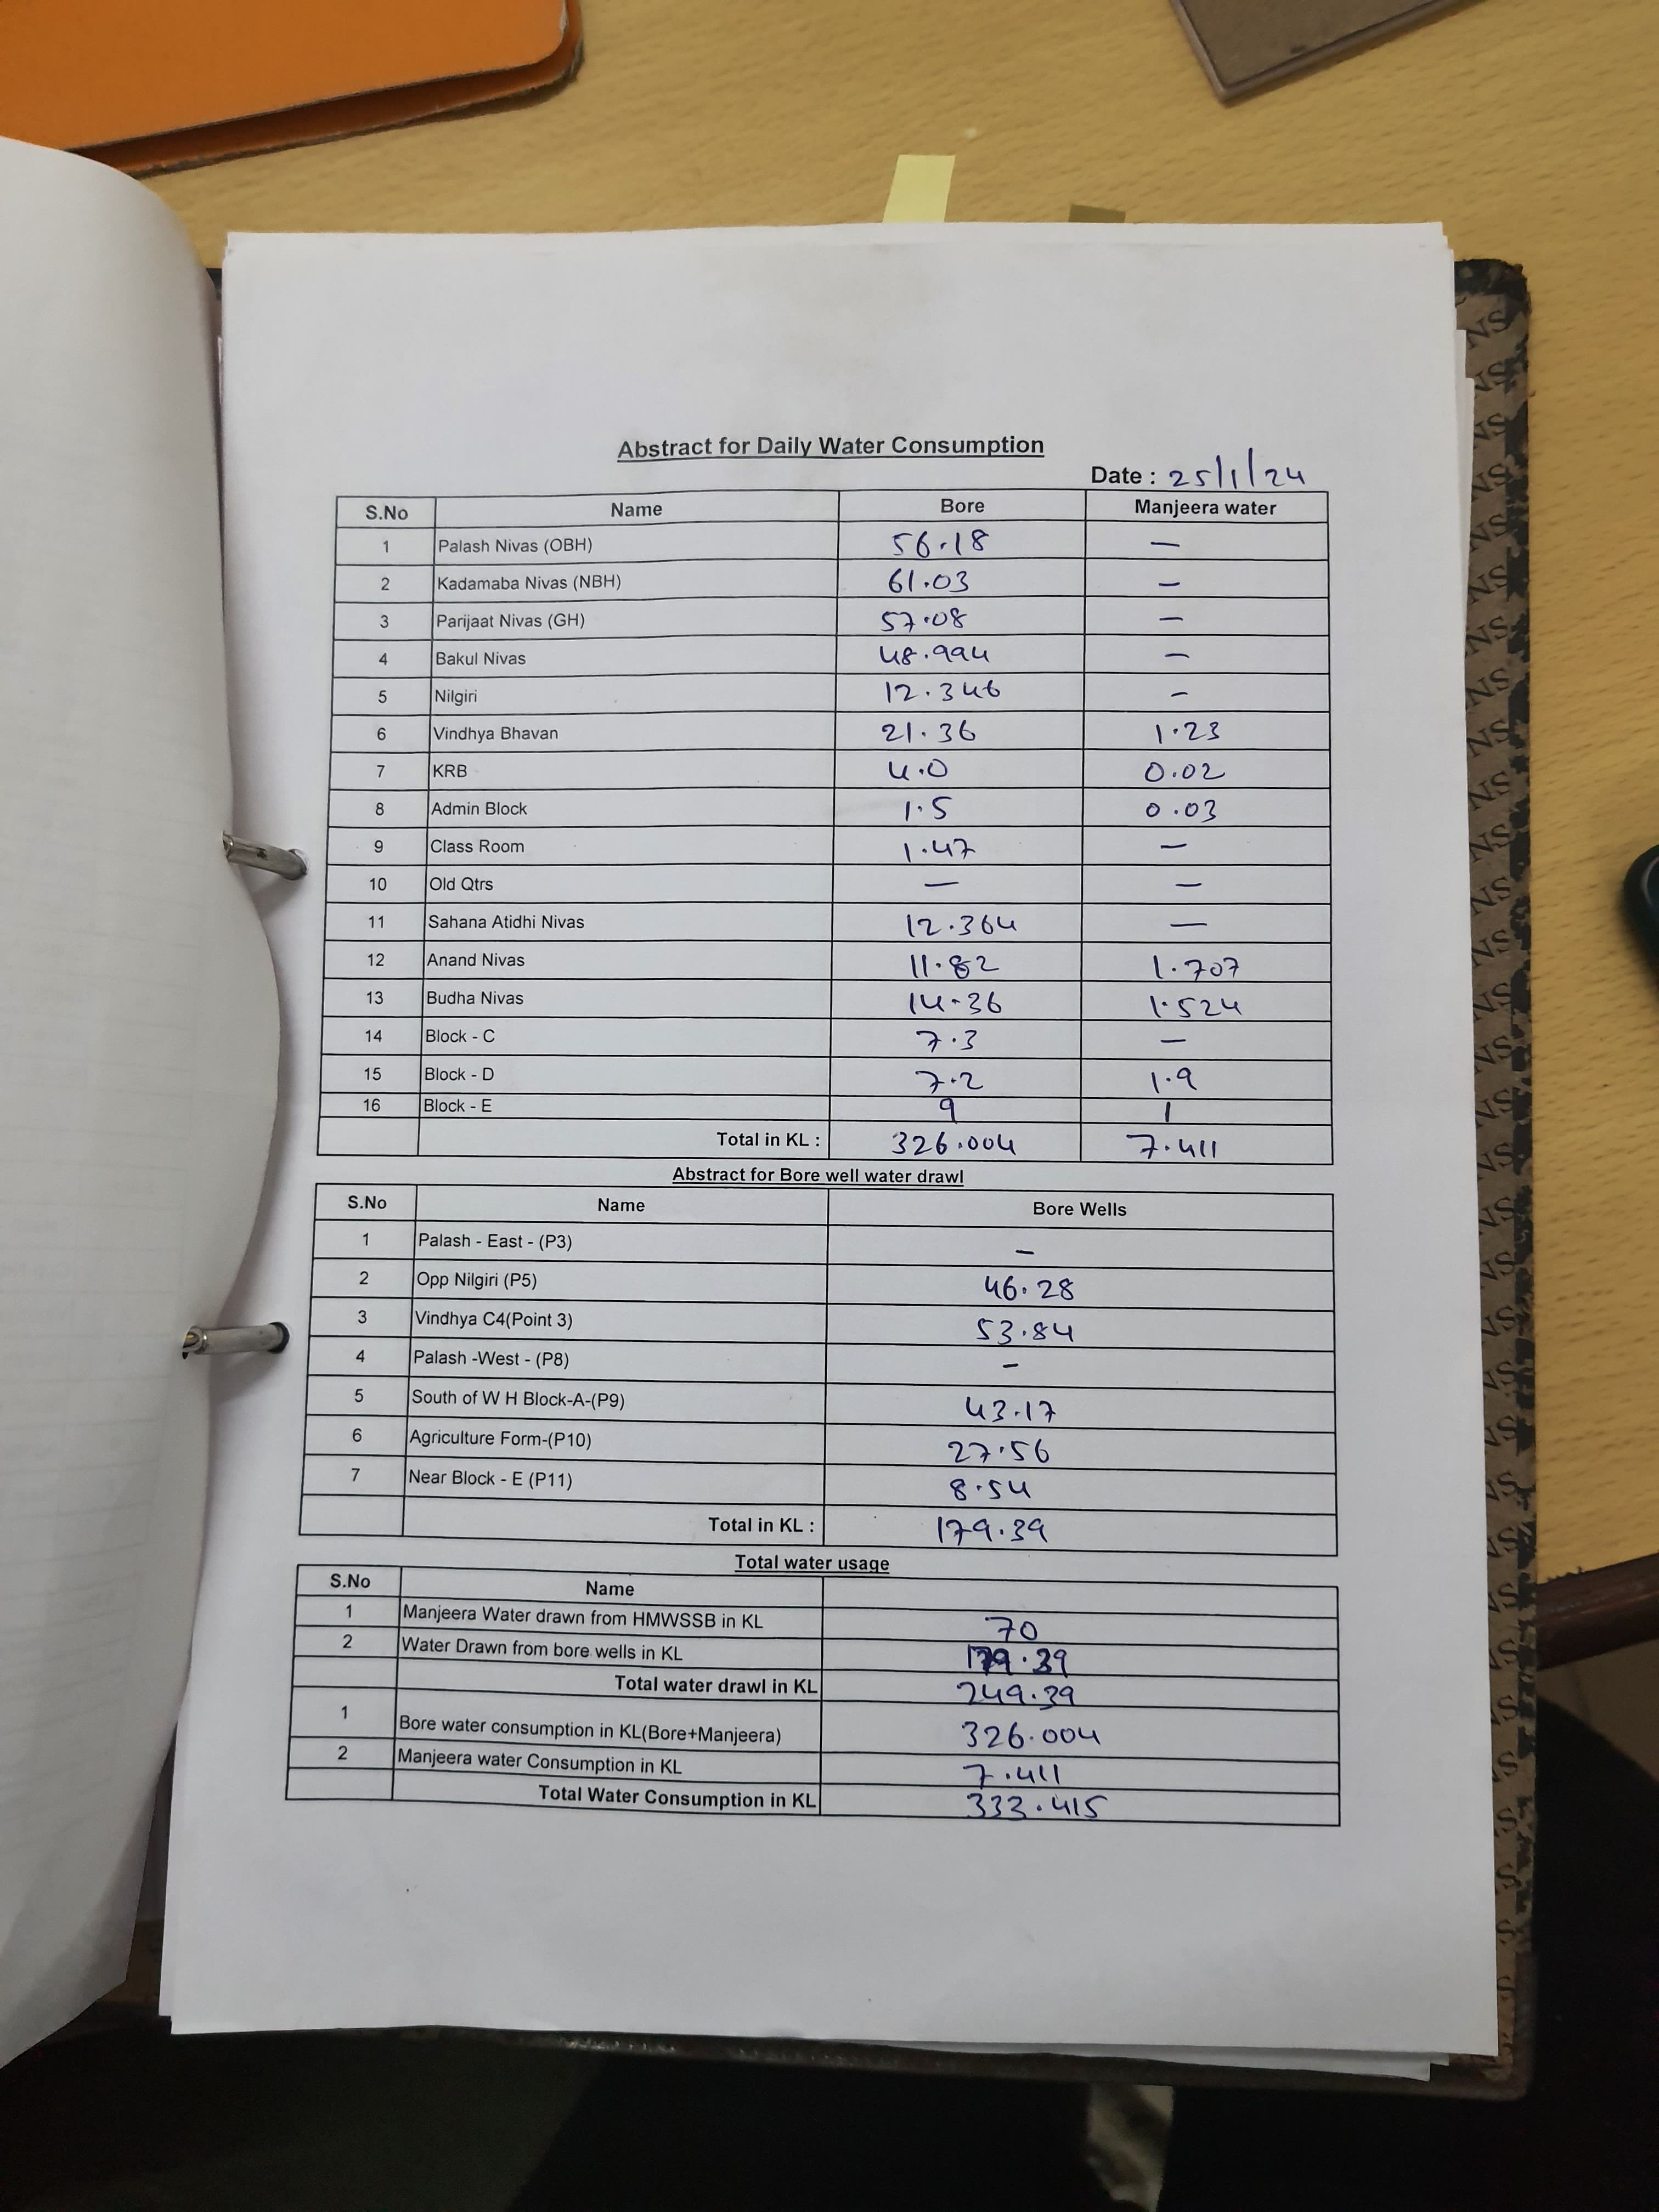 Abstract for Daily Water Consumption
Date : 25/1/24
S.No Name Bore Manjeera water
1 Palash Nivas (OBH) 56.18 —
2 Kadamaba Nivas (NBH) 61.03 —
3 Parijaat Nivas (GH) 57.08 —
4 Bakul Nivas 48.994 —
5 Nilgiri 12.346 —
6 Vindhya Bhavan 21.36 1.23
7 KRB 4.0 0.02
8 Admin Block 1.5 0.03
9 Class Room 1.47 —
10 Old Qtrs — —
11 Sahana Atidhi Nivas 12.364 —
12 Anand Nivas 11.82 1.707
13 Budha Nivas 14.36 1.524
14 Block - C 7.3 —
15 Block - D 7.2 1.9
16 Block - E 9 1
Total in KL : 326.004 7.411
Abstract for Bore well water drawl
S.No Name Bore Wells
1 Palash - East - (P3) —
2 Opp Nilgiri (P5) 46.28
3 Vindhya C4(Point 3) 53.84
4 Palash -West - (P8) —
5 South of W H Block-A-(P9) 43.17
6 Agriculture Form-(P10) 27.56
7 Near Block - E (P11) 8.54
Total in KL : 179.39
Total water usage
S.No Name
1 Manjeera Water drawn from HMWSSB in KL 70
2 Water Drawn from bore wells in KL 179.39
Total water drawl in KL 249.39
1 Bore water consumption in KL(Bore+Manjeera) 326.004
2 Manjeera water Consumption in KL 7.411
Total Water Consumption in KL 333.415